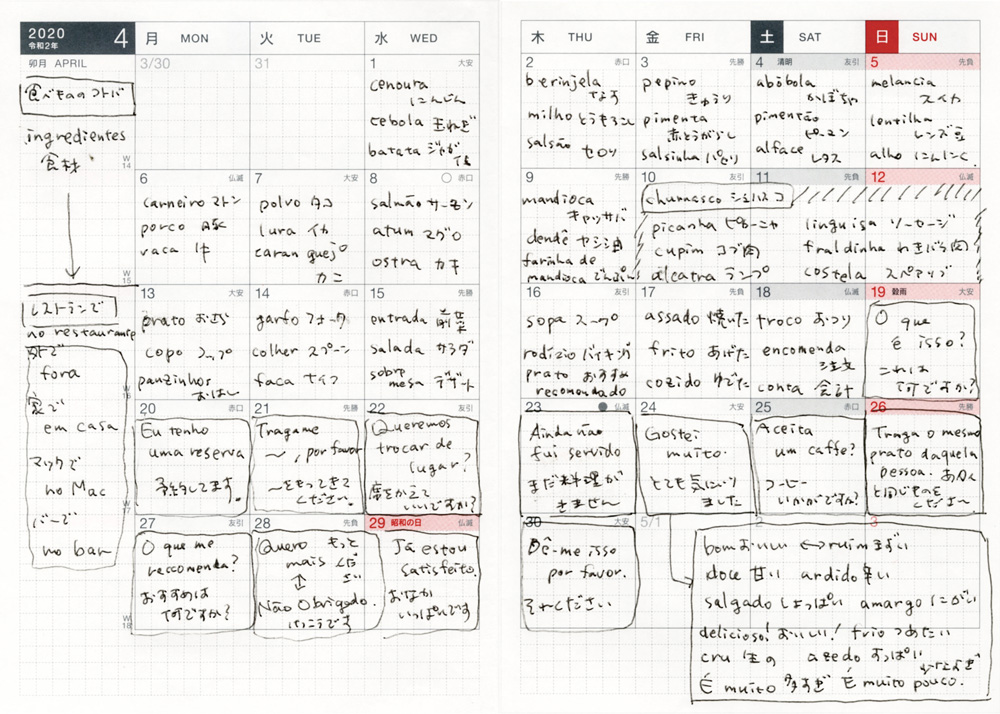 2020
令和2年
4
月 MON
火 TUE
水 WED
木 THU
金 FRI
土 SAT
日 SUN
卯月 APRIL
食べもののコトバ
ingredientes
食材
W
14
3/30
31
1 大安
cenoura
にんじん
cebola 玉ねぎ
batata ジャガ
2 赤口
berinjela
なす
milho とうもろこし
salsão セロリ
3 先勝
pepino
きゅうり
pimenta
赤とうがらし
salsinha パセリ
4 清明 友引
abóbola
かぼちゃ
pimentão
ピーマン
alface レタス
5 先負
melancia
スイカ
lentilha
レンズ豆
alho にんにく
W
15
6 仏滅
carneiro マトン
porco 豚
vaca 牛
7 大安
polvo タコ
lura イカ
caranguejo
カニ
8 赤口
salmão サーモン
atum マグロ
ostra カキ
9 先勝
mandioca
キャッサバ
dendê ヤシ油
farinha de
mandioca でんぷん
10 友引
churrasco シュハスコ
11 先負
12 仏滅
picanha ピカーニャ
cupim コブ肉
alcatra ランプ
linguisa ソーセージ
fraldinha わきばら肉
costela スペアリブ
レストランで
no restaurante
外で
fora
家で
em casa
マックで
no Mac
バーで
no bar
W
16
13 大安
prato おさら
copo コップ
pauzinhos
おはし
14 赤口
garfo フォーク
colher スプーン
faca ナイフ
15 先勝
entrada 前菜
salada サラダ
sobre
mesa デザート
16 友引
sopa スープ
rodízio バイキング
prato おすすめ
recomendado
17 先負
assado 焼いた
frito あげた
cozido ゆでた
18 仏滅
troco おつり
encomenda
注文
conta 会計
19 穀雨 大安
O que
é isso?
これは
何ですか?
W
17
20 赤口
Eu tenho
uma reserva
予約してます。
21 先勝
Tragame
〜, por favor
〜をもってきて
ください。
22 友引
Queremos
trocar de
lugar?
席をかえて
いいですか?
23 仏滅
Ainda não
fui servido
まだ料理が
きません
24 大安
Gostei
muito.
とても気にいり
ました
25 赤口
Aceita
um caffe?
コーヒー
いかがですか?
26 先勝
Traga o mesmo
prato daquela
pessoa. あの人
と同じものを
くださーい
W
18
27 友引
O que me
reccomenda?
おすすめは
何ですか?
28 先負
Quero もっと
mais くだ
さい
Não Obrigado.
けっこうです
29 昭和の日 仏滅
Já estou
satisfeito.
おなか
いっぱいです
30 大安
Dê-me isso
por favor.
それください
5/1
2
3
bom おいしい ↔ ruim まずい
doce 甘い ardido 辛い
salgado しょっぱい amargo にがい
delicioso! おいしい! frio つめたい
cru 生の azedo すっぱい
É muito 多すぎ É muito pouco.